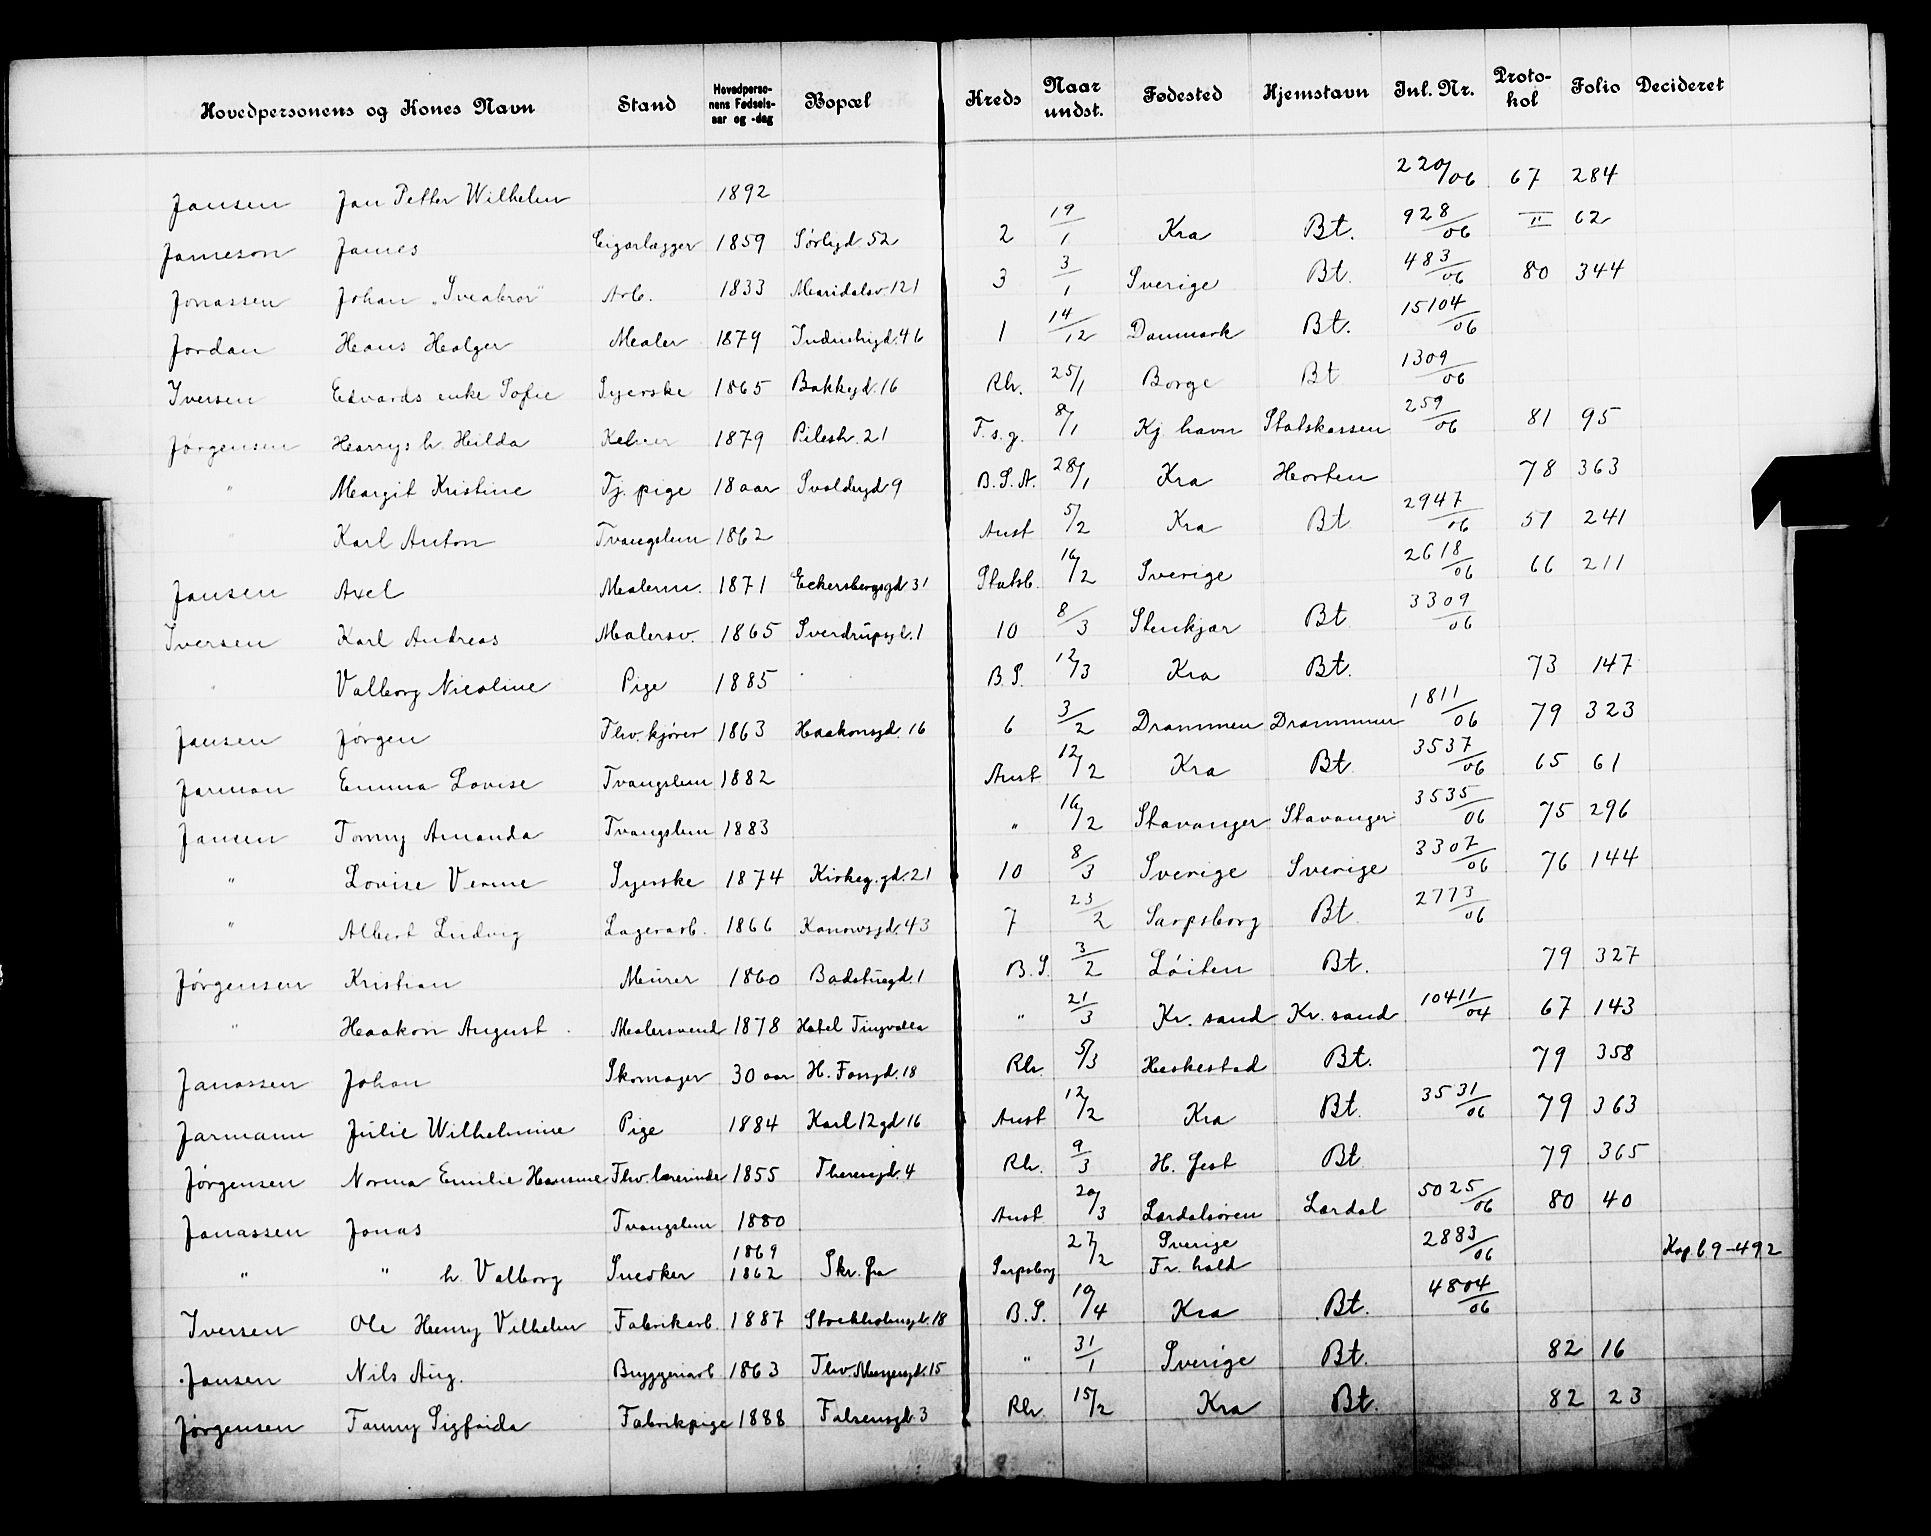 Hovedpersonens og Kones Navn Stand Hovedpersonens Fødselsaar og -dag Bopæl Kreds Naar undst. Fødested Hjemstavn Inl. Nr. Protokol Folio Decideret
Jansen Jan Petter Wilhelm 1892 220/06 67 284
Jameson James Cigarlægger 1859 Sørbyd 52 2 19/1 Kra Bt. 928/06 II 62
Jonassen Johan „Sveabror" Arb. 1833 Maridalsv. 121 3 3/1 Sverige Bt. 483/06 80 344
Jordan Hans Holger Maler 1879 Industrigd. 46 1 14/12 Danmark Bt. 15104/06
Iversen Edvards enke Sofie Syerske 1865 Bakkegd. 16 Rh. 25/1 Borge Bt 1309/06
Jørgensen Harrys h. Hilda Kelner 1879 Pilestr. 21 F.s.g. 8/1 Kj.havn Statskassen 259/06 81 95
" Margit Kristine Tj. pige 18 aar Svoldergd 9 B.S.A. 28/1 Kra Horten 78 363
Karl Anton Tvangslem 1862 Anst 5/2 Kra Bt 2947/06 51 241
Jansen Axel Malerm. 1871 Eckersbergsgd 31 Statsb. 16/2 Sverige 2618/06 66 211
Iversen Karl Andreas Malersv. 1865 Sverdrupsgt. 1 10 8/3 Stenkjær Bt 3309/06
" Valborg Nicoline Pige 1885 B.S. 12/3 Kra Bt. 73 147
Jansen Jørgen Fhv. kjører 1863 Haakonsgd. 16 6 3/2 Drammen Drammen 1811/06 79 323
Jarman Emma Lovise Tvangslem 1882 Anst 12/2 Kra Bt 3537/06 65 61
Jansen Tonny Amanda Tvangslem 1883 " 16/2 Stavanger Stavanger 3535/06 75 296
" Lovise Verine Syerske 1874 Kirkeg.gd. 21 10 8/3 Sverige Sverige 3307/06 76 144
" Albert Ludvig Lagerarb. 1866 Kanowsgd. 43 7 23/2 Sarpsborg Bt 2773/06
Jørgensen Kristian Murer 1860 Badstuegd. 1 B.S. 3/2 Løiten Bt. 79 327
" Haakon August Malersvend 1878 Hotel Tingvalla " 21/3 Kr.sand Kr.sand 10411/04 67 143
Janassen Johan Skomager 30 aar H. Fossgd. 18 Rh. 5/3 Heskestad Bt. 79 358
Jarmann Julie Wilhelmine Pige 1884 Karl 12 gd 16 Anst 12/2 Kra Bt. 3531/06 79 363
Jørgensen Norma Emilie Hansine Fhv. lærerinde 1855 Theresegd. 4 Rh. 9/3 H. Jest Bt 79 365
Janassen Jonas Tvangslem 1880 Anst 20/3 Lærdalsøren Lærdal 5025/06 80 40
" " h. Valborg Snedker 1869 1862 Skr. fra Sarpsborg 27/2 Sverige Fr.hald 2883/06 Kop. 69-492
Iversen Ole Henry Vilhelm Fabrikarb. 1887 Stockholmsgt. 18 B.S. 19/4 Kra Bt. 4804/06
Jansen Nils Aug. Bryggeriarb 1863 Thv. Meyersgd. 15 " 31/1 Sverige Bt. 82 16
Jørgensen Fanny Sigfrida Fabrikpige 1888 Falsensgd. 3 Rh. 15/2 Kra Bt. 82 23